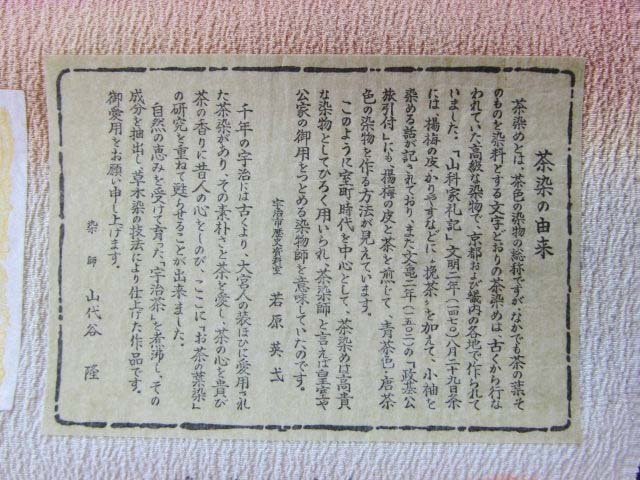 茶染の由来
茶染めとは、茶色の染物の総称ですがなかでも茶の葉そ
のものを染料とする文字どおりの茶染めは古くから行な
われていた高級な染物で、京都および畿内の各地で作られて
いました。「山科家礼記」文明二年(一四七〇)八月二十九日条
には、楊梅の皮かりやすなどに、挽茶を加えて、小袖を
染める話が記されており、また文亀二年(一五〇二)の「政基公
旅引付」にも、楊梅の皮と茶を煎じて、青茶色・唐茶
色の染物を作る方法が見えています。
このように室町時代を中心として、茶染めは高貴
な染物としてひろく用いられ、茶染師と言えば皇室や
公家の御用をつとめる染物師を意味していたのです。
宇治市歴史資料室 若原英弌
千年の宇治には古くより、大宮人の装ほひに愛用され
た茶染があり、その素朴さと茶を愛し、茶の心を貴び
茶の香りに昔人の心をしのび、ここに「お茶の葉染」
の研究を重ねて甦らせることが出来ました。
自然の恵みを受けて育った「宇治茶」を煮沸し、その
成分を抽出し、草木染の技法により仕上げた作品です。
御愛用をお願い申し上げます。
染師 山代谷